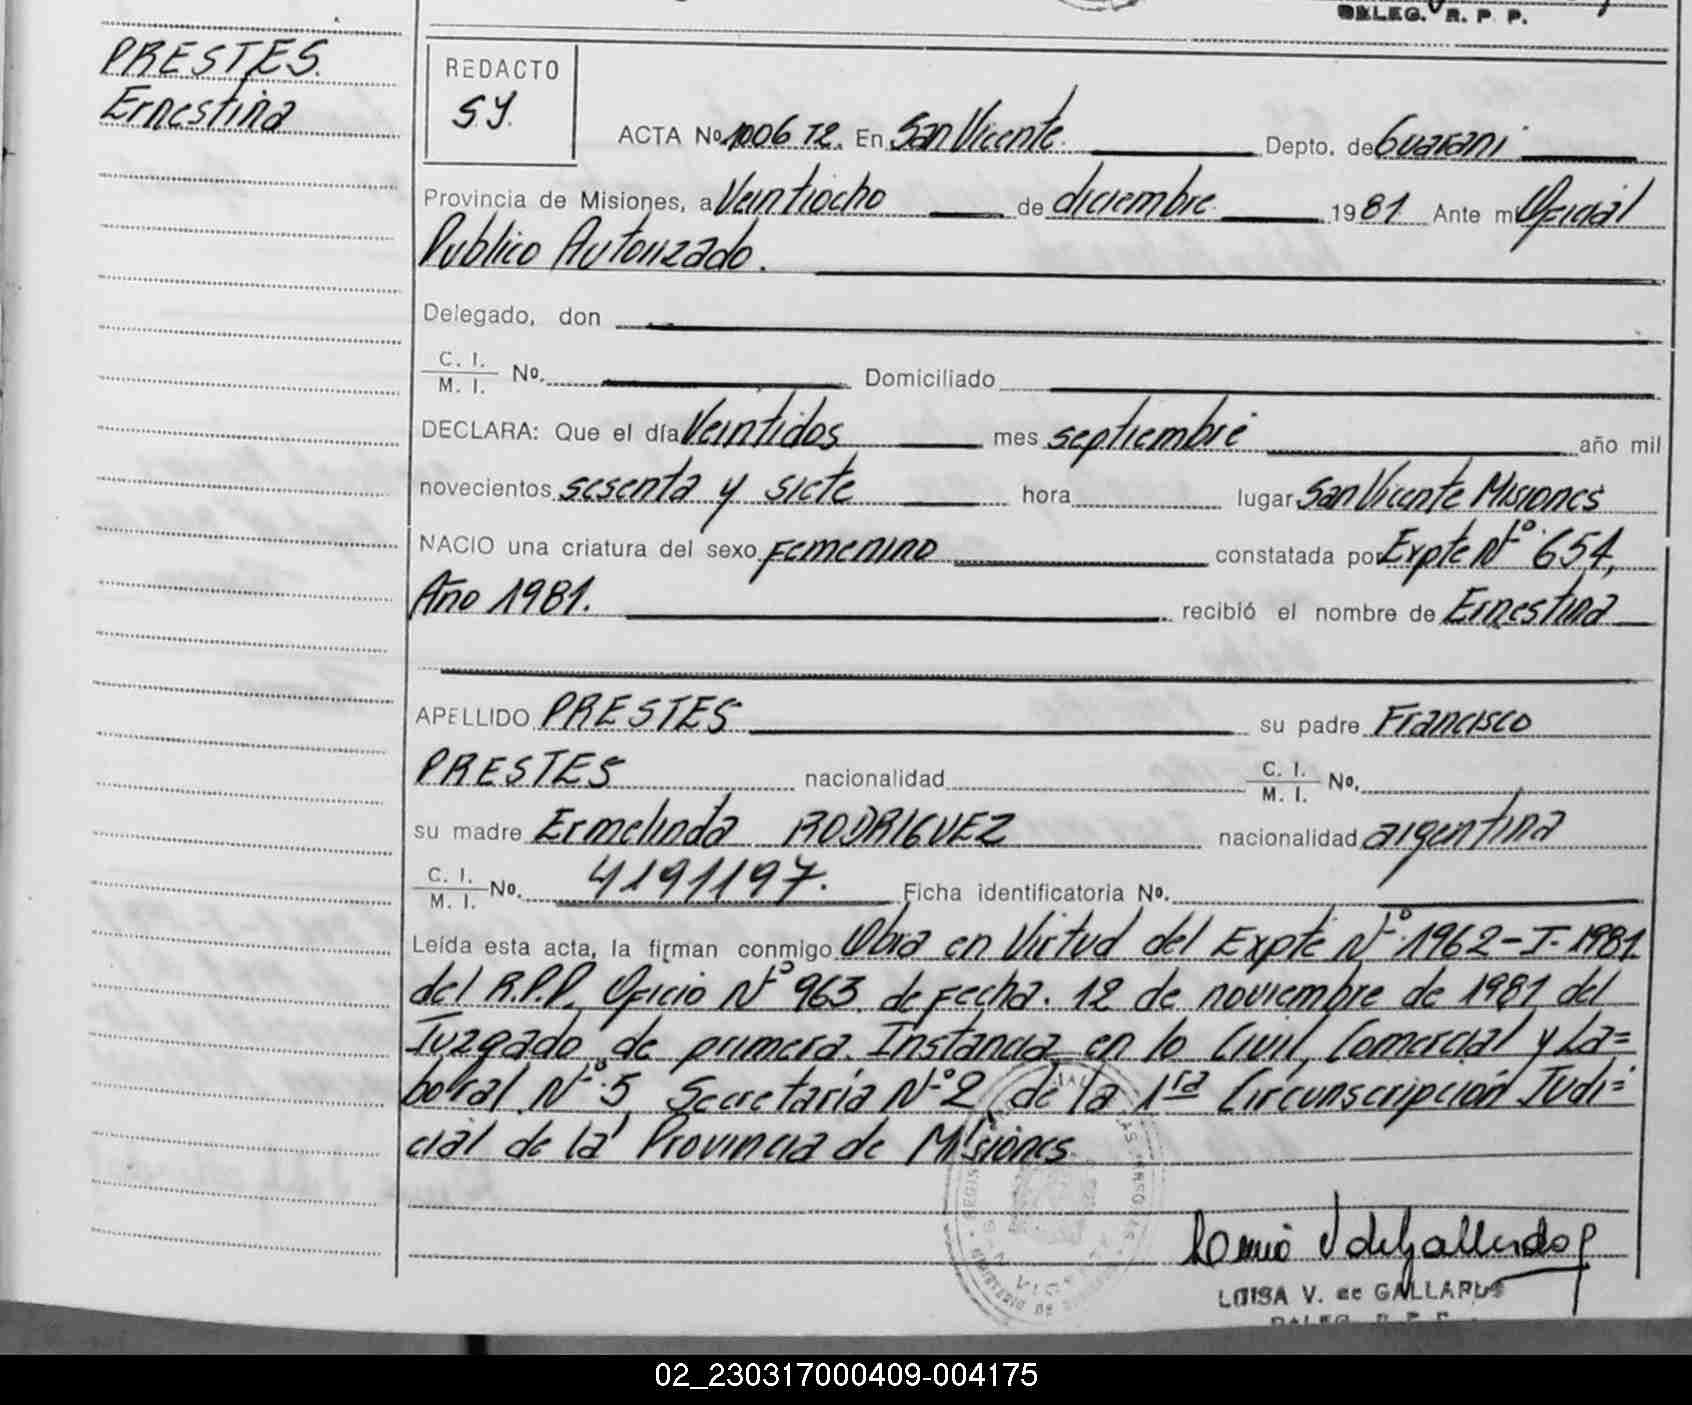 DELEG. R. P. P.
PRESTES.
Ernestina
REDACTO
S.Y.
ACTA No. 1006 T2. En San Vicente. Depto. de Guaraní
Provincia de Misiones, a Veintiocho de diciembre 1981 Ante mí Oficial
Publico Autorizado.
Delegado, don
C. I. / M. I. No. Domiciliado
DECLARA: Que el día Veintidos mes septiembre año mil
novecientos sesenta y siete hora lugar San Vicente Misiones
NACIO una criatura del sexo Femenino constatada por Expte Nº 654,
Año 1981. recibió el nombre de Ernestina
APELLIDO PRESTES su padre Francisco
PRESTES nacionalidad C. I. / M. I. No.
su madre Ermelinda RODRIGUEZ nacionalidad argentina
C. I. / M. I. No. 4191197. Ficha identificatoria No.
Leída esta acta, la firman conmigo Obra en Virtud del Expte Nº 1962-I-1981.
del R.P.P. Oficio Nº 963, de Fecha. 12 de noviembre de 1981 del
Juzgado de primera Instancia en lo Civil, Comercial y La=
boral Nº 5, Secretaría Nº 2, de la 1ra Circunscripción Judi=
cial de la Provincia de Misiones
LUISA V. de GALLARDO
DELEG. R. P. P.
02_230317000409-004175